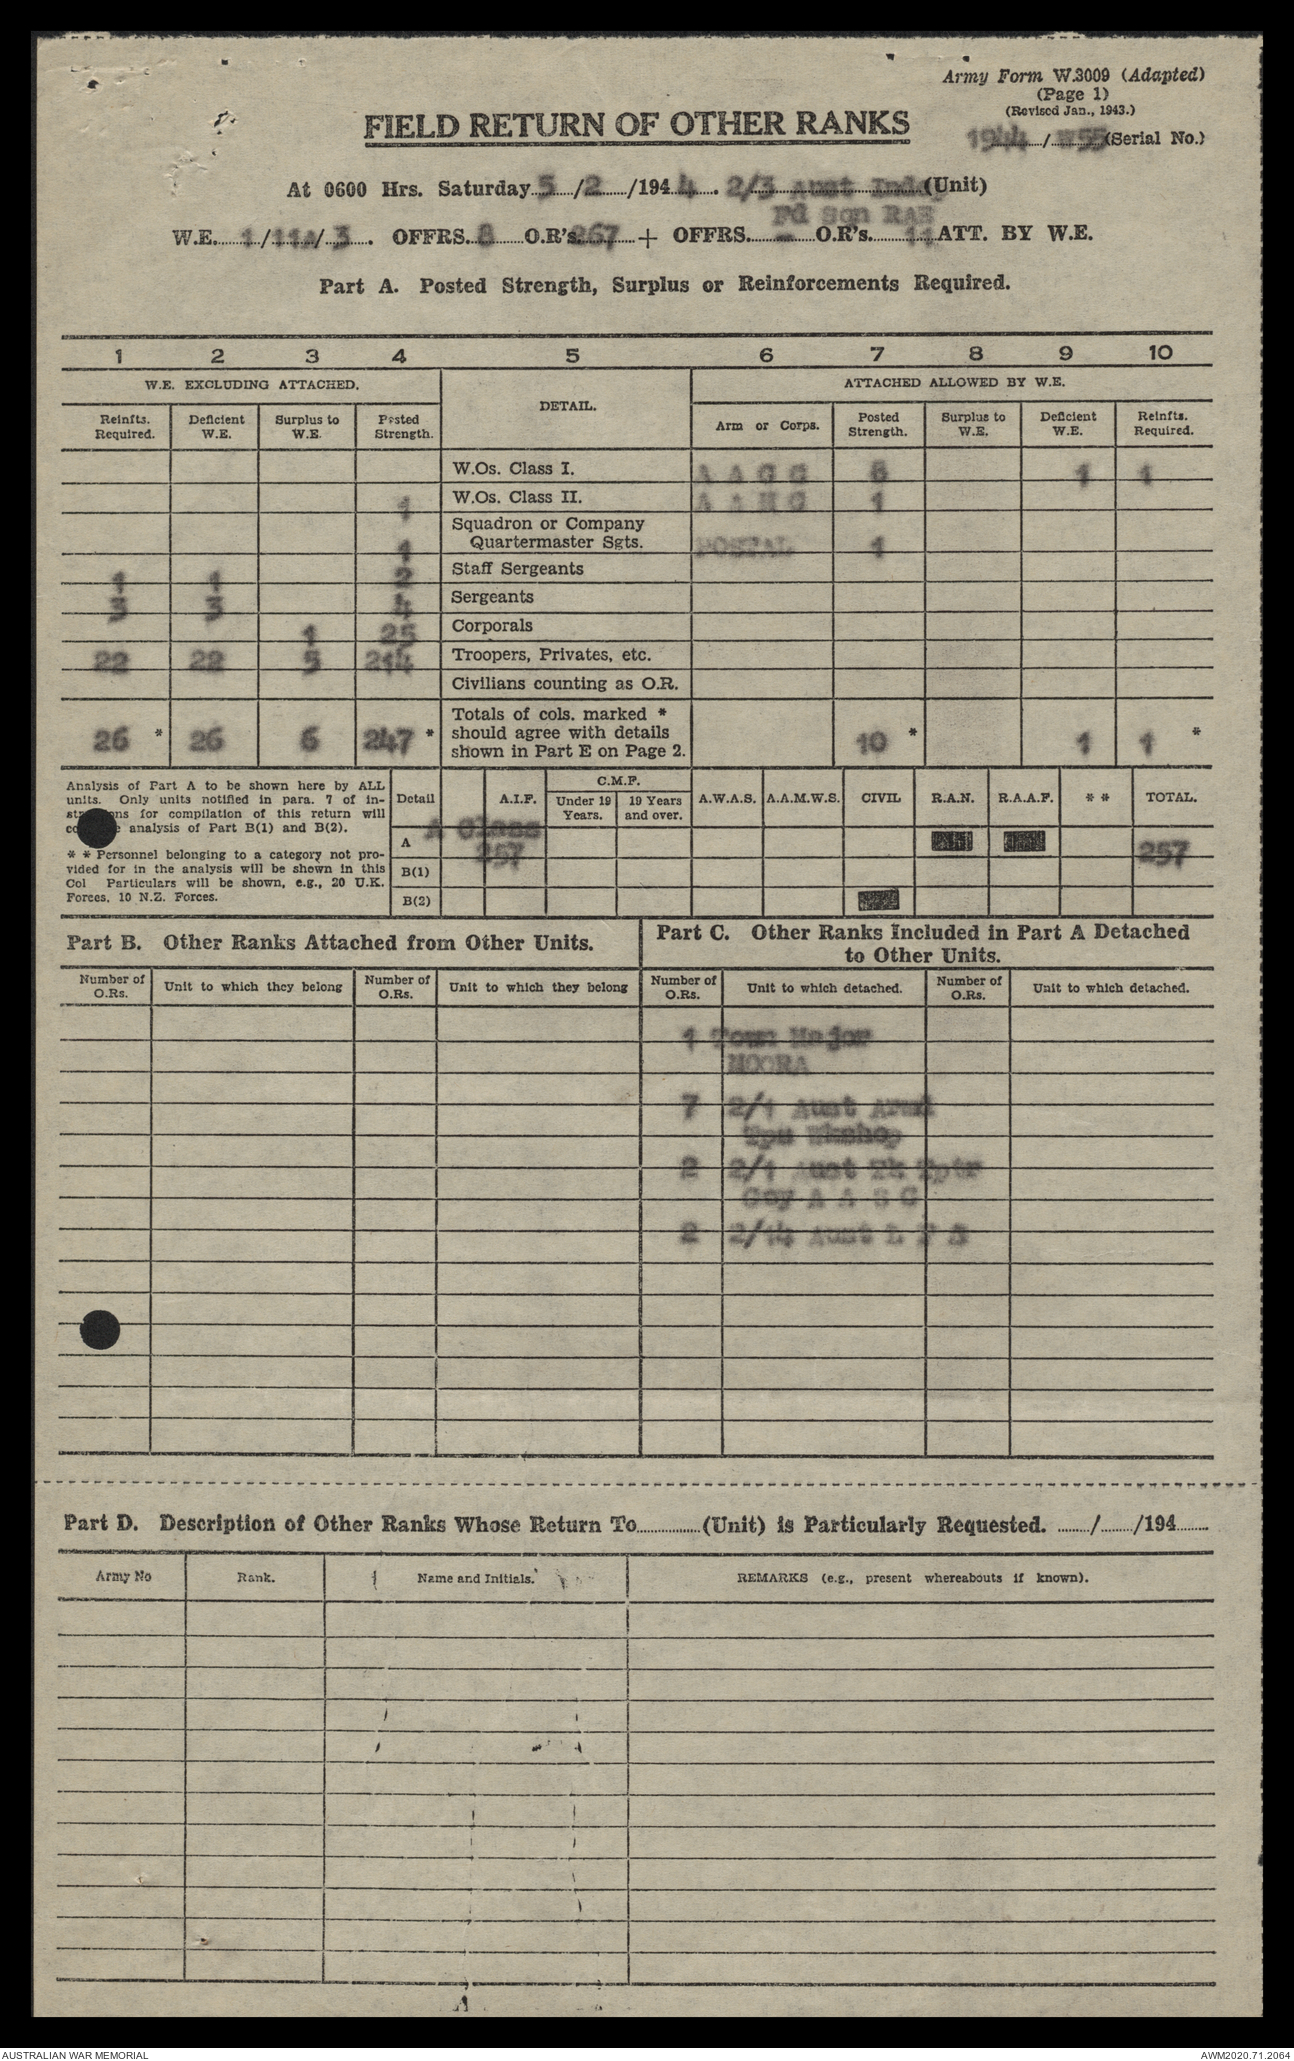 Army Form W.3009 (Adapted)
(Page 1)
(Revised Jan., 1943.)
FIELD RETURN OF OTHER RANKS
1944/W55 (Serial No.)
At 0600 Hrs. Saturday 5/2/1944. 2/3 Aust Indep (Unit)
Fd Sqn RAE
W.E. 1/11A/3. OFFRS. 8 O.R's 267 + OFFRS. - O.R's. 11 ATT. BY W.E.
Part A. Posted Strength, Surplus or Reinforcements Required.
1 2 3 4 5 6 7 8 9 10
W.E. EXCLUDING ATTACHED. DETAIL. ATTACHED ALLOWED BY W.E.
Reinfts. Required. Deficient W.E. Surplus to W.E. Posted Strength. Arm or Corps. Posted Strength. Surplus to W.E. Deficient W.E. Reinfts. Required.
W.Os. Class I. A A C C 8 1 1
1 W.Os. Class II. A A M C 1
Squadron or Company
1 Quartermaster Sgts. POSTAL 1
1 1 2 Staff Sergeants
3 3 4 Sergeants
1 25 Corporals
22 22 5 214 Troopers, Privates, etc.
Civilians counting as O.R.
Totals of cols. marked *
26 * 26 6 247 * should agree with details 10 * 1 1 *
shown in Part E on Page 2.
Analysis of Part A to be shown here by ALL
units. Only units notified in para. 7 of in-
ns for compilation of this return will
analysis of Part B(1) and B(2).
* * Personnel belonging to a category not pro-
vided for in the analysis will be shown in this
Col Particulars will be shown, e.g., 20 U.K.
Forces, 10 N.Z. Forces.
Detail A.I.F. C.M.F. Under 19 Years. 19 Years and over. A.W.A.S. A.A.M.W.S. CIVIL R.A.N. R.A.A.F. * * TOTAL.
A Class
A 257 257
B(1)
B(2)
Part B. Other Ranks Attached from Other Units.
Part C. Other Ranks Included in Part A Detached
to Other Units.
Number of O.Rs. Unit to which they belong Number of O.Rs. Unit to which they belong Number of O.Rs. Unit to which detached. Number of O.Rs. Unit to which detached.
1 Town Major
MOORA
7 2/1 Aust Armd
Tps Wkshop
2 2/1 Aust Tk Tptr
Coy A A S C
2 2/14 Aust L F S
Part D. Description of Other Ranks Whose Return To (Unit) is Particularly Requested. / /194
Army No Rank. Name and Initials. REMARKS (e.g., present whereabouts if known).
AUSTRALIAN WAR MEMORIAL AWM2020.71.2064